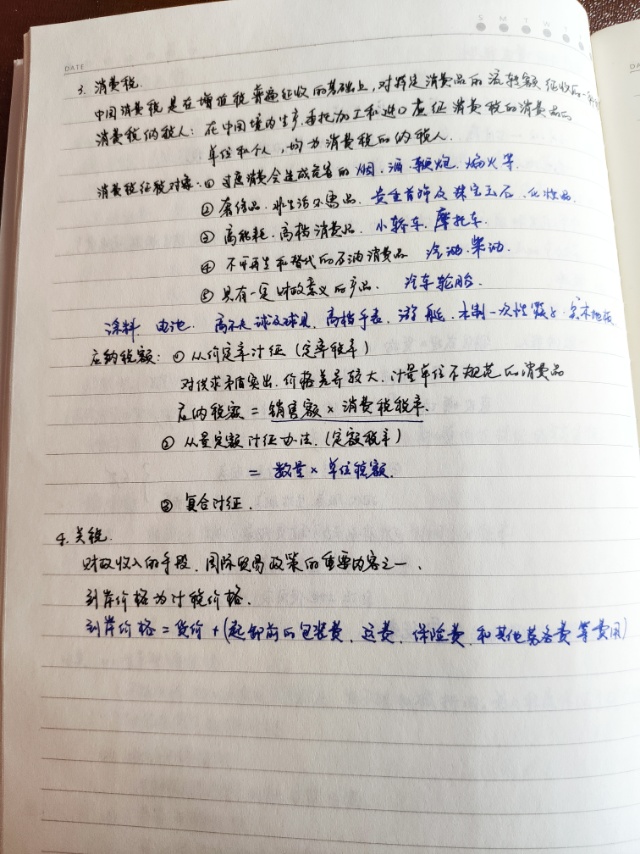 DATE
3. 消费税.
中国消费税是在增值税普遍征收的基础上, 对特定消费品的流转额征收的一种
消费税纳税人: 在中国境内生产、委托加工和进口应征消费税的消费品的
单位和个人, 均为消费税的纳税人.
消费税征税对象: ① 过度消费会造成危害的 烟、酒、鞭炮、焰火等.
② 奢侈品、非生活必需品、贵重首饰及珠宝玉石、化妆品.
③ 高能耗、高档消费品、小轿车、摩托车.
④ 不可再生和替代的石油消费品 汽油、柴油.
⑤ 具有一定财政意义的产品、汽车轮胎.
涂料 电池、高尔夫球及球具、高档手表、游艇、木制一次性筷子、实木地板
应纳税额: ① 从价定率计征 (定率税率)
对供求矛盾突出、价格差异较大、计量单位不规范的消费品
应纳税额 = 销售额 × 消费税税率.
② 从量定额计征办法. (定额税率)
= 数量 × 单位税额.
③ 复合计征.
4. 关税.
财政收入的手段、国际贸易政策的重要内容之一.
到岸价格为计税价格.
到岸价格 = 货价 + (起卸前的包装费、运费、保险费、和其他劳务费等费用)